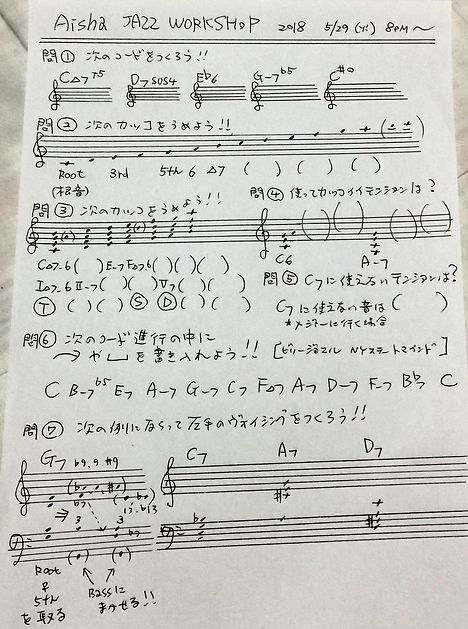 Aisha JAZZ WORKSHOP 2018 5/29 (火) 8PM〜
問① 次のコードをつくろう!!
C△7 +5 D7 sus4 E♭6 G-7 ♭5 C#○
問② 次のカッコをうめよう!!
Root 3rd 5th 6 △7 ( ) ( ) ( )
(根音)
問③ 次のカッコをうめよう!!
C△7-6 ( ) E-7 F△7-6 ( ) ( ) ( )
I△7-6 II-7 ( ) ( ) V7 ( ) ( )
(T) ( ) ( ) (S) (D) ( ) ( )
問④ 使ってカッコイイテンションは?
C6 A-7
問⑤ C7に使えないテンションは?
C7に使えない音は ( )
*メジャーに行く場合
問⑥ 次のコード進行の中に
→ や ⌴ を書き入れよう!! [ビリージョエル NYステートマインド]
C B-7♭5 E7 A-7 G-7 C7 F△7 A7 D-7 F-7 B♭7 C
問⑦ 次の例にならって左手のヴォイシングをつくろう!!
G7 ♭9.9 #9 C7 A7 D7
♭7
13 ♭13
⇒ 3 3 ♭7
Root & 5th を取る
Bassに まかせる!!